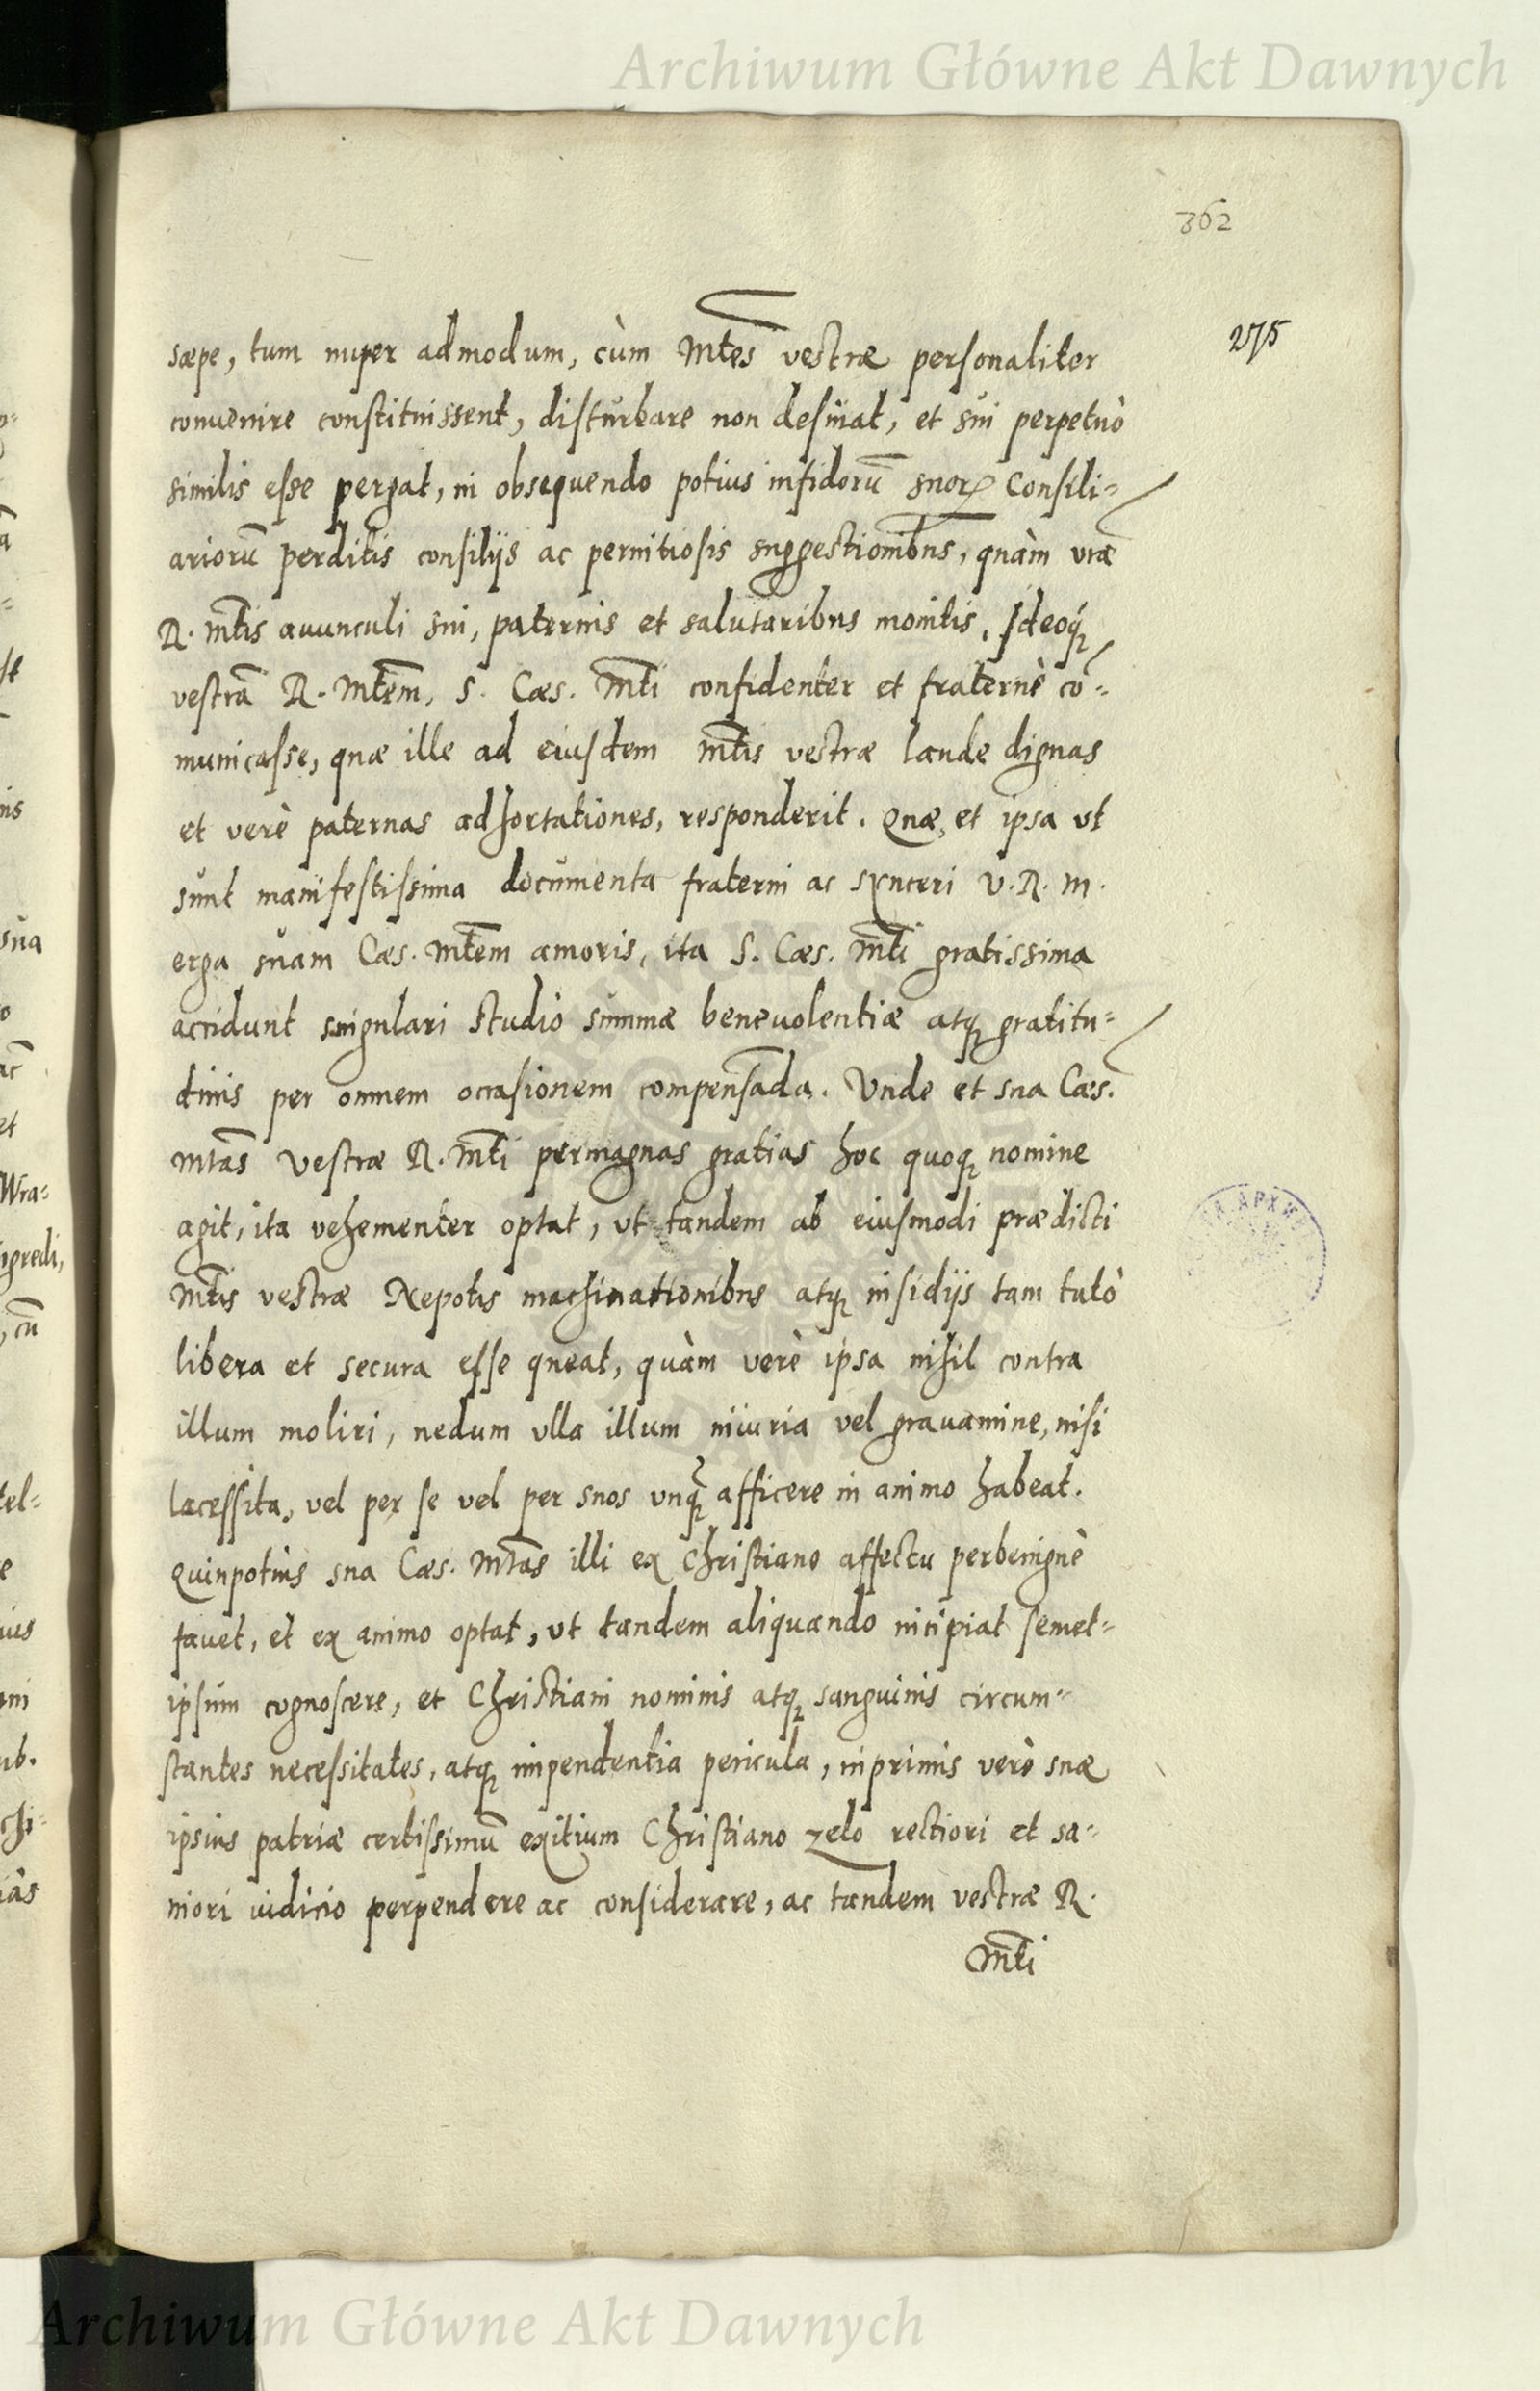 Archiwum Główne Akt Dawnych
362
275
sæpe, tum nuper admodum, cùm Mtes vestræ personaliter
conuenire constituissent, disturbare non desinat, et sui perpetuò
similis esse pergat, in obsequendo potius infidorũ suorꝝ Consili-
ariorũ perditis consilijs ac pernitiosis suggestionibus, quàm vræ
R. Mtis auunculi sui, paternis et salutaribus monitis. Ideoq́ꝫ
vestrã R. Mtem, S. Cæs. Mti confidenter et fraternè cõ-
municasse, quæ ille ad eiusdem Mtis vestræ laude dignas
et verè paternas adhortationes, responderit. Quæ, et ipsa vt
sunt manifestissima documenta fraterni ac synceri V. R. M.
erga suam Cæs. Mtem amoris, ita S. Cæs. Mti gratissima
accidunt singulari studio summæ beneuolentiæ atqꝫ gratitu-
dinis per omnem occasionem compensãda. Vnde et sua Cæs.
Mtas Vestræ R. Mti permagnas gratias hoc quoqꝫ nomine
agit, ita vehementer optat, vt tandem ab eiusmodi prædicti
Mtis vestræ Nepotis machinationibus atqꝫ insidijs tam tutò
libera et secura esse queat, quàm verè ipsa nihil contra
illum moliri, nedum vlla illum iniuria vel grauamine, nisi
lacessita, vel per se vel per suos vnq̃ꝫ afficere in animo habeat.
Quinpotius sua Cæs. Mtas illi ex Christiano affectu perbenignè
fauet, et ex animo optat, vt tandem aliquando incipiat semet-
ipsum cognoscere, et Christiani nominis atqꝫ sanguinis circum-
stantes necessitates, atqꝫ impendentia pericula, inprimis verò suæ
ipsius patriæ certissimũ exitium Christiano zelo rectiori et sa-
niori iudicio perpendere ac considerare, ac tandem vestræ R.
Mti
Archiwum Główne Akt Dawnych